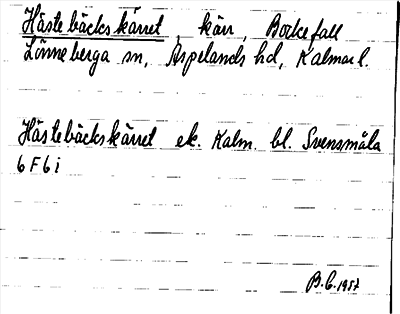 Hästebäckskärret, kärr, Bockefall
Lönneberga sn, Aspelands hd, Kalmar l.
Hästebäckskärret ek. Kalm. bl. Svensmåla
6 F 6 i
B.G. 1957